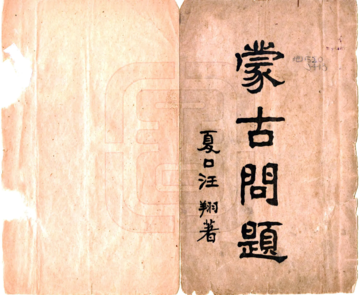 蒙古問題
夏口汪翔著